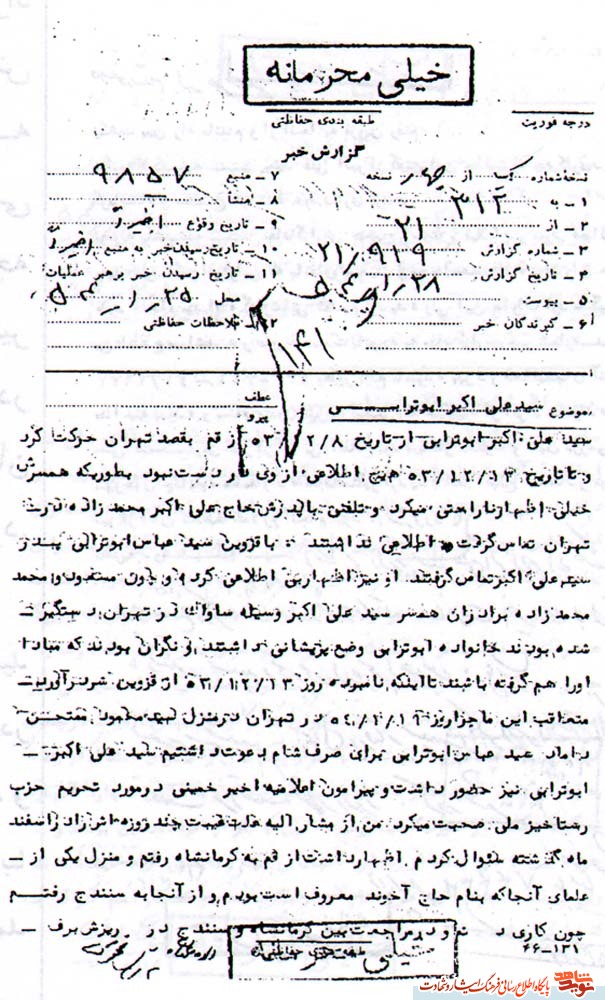 خیلی محرمانه
طبقه بندی حفاظتی
درجه فوریت
گزارش خبر
نسخه شماره یک از چهار نسخه
۷ - منبع ۹۸۵۷
۱ - به ۳۱۲
۸ - منشأ
۲ - از ۲۱
۹ - تاریخ وقوع اخیراً
۳ - شماره گزارش ۲۱/۹۱۹
۱۰ - تاریخ رسیدن خبر به منبع اخیراً
۴ - تاریخ گزارش ۵۴/۱/۲۸
۱۱ - تاریخ رسیدن خبر برهبر عملیات
۵ - پیوست
محل ۵۴/۱/۲۵
۶ - گیرندگان خبر
۱۲ - ملاحظات حفاظتی
۱۴۱
عطف
پیرو
موضوع سید علی اکبر ابوترابی
سید علی اکبر ابوترابی از تاریخ ۵۳/۱۲/۸ از قم بقصد تهران حرکت کرد
و تا تاریخ ۵۳/۱۲/۱۳ هیچ اطلاعی از وی در دست نبود بطوریکه همسرش
خیلی اظهار ناراحتی میکرد و تلفنی با پدرش حاج علی اکبر محمد زاده در
تهران تماس گرفت اطلاعی نداشتند با قزوین سید عباس ابوترابی پدر
سید علی اکبر تماس گرفتند او نیز اظهار بی اطلاعی کرد و چون مسعود و محمد
محمد زاده برادران همسر سید علی اکبر وسیله ساواک در تهران دستگیر
شده بودند خانواده ابوترابی وضع پریشانی داشتند و نگران بودند که مبادا
اورا هم گرفته باشند تا اینکه نامبرده روز ۵۳/۱۲/۱۳ از قزوین سر در آورد
متعاقب این ماجرا روز ۵۴/۱/۱۶ در تهران در منزل سید محمود
داماد سید عباس ابوترابی برای صرف شام دعوت داشتیم سید علی اکبر
ابوترابی نیز حضور داشت و پیرامون اعلامیه اخیر خمینی در مورد تحریم حزب
رستاخیز ملی صحبت میکرد. من از مشارالیه علت غیبت چند روزه اش را در اسفند
ماه گذشته سئوال کردم اظهار داشت از قم به کرمانشاه رفتم و منزل یکی از
علمای آنجا که بنام حاج آخوند معروف است بودم و از آنجا به سنندج رفتم
چون کاری د و در مراجعت بین کرمانشاه و سنندج در ریزش برف
۱۳۱-۴۶
خیلی محرمانه
طبقه بندی حفاظتی
نوید شاهد
پایگاه اطلاع رسانی فرهنگ ایثار و شهادت